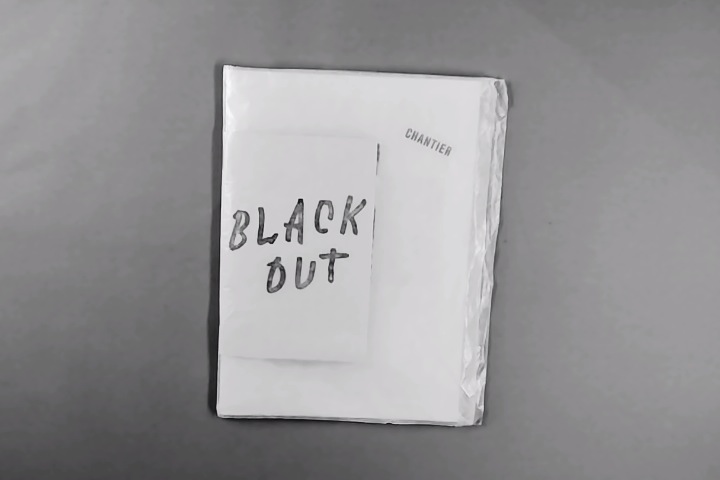 CHANTIER
BLACK
OUT